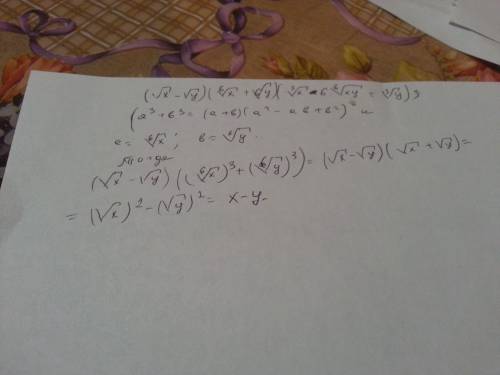 (√x - √y)(⁶√x + ⁶√y)(³√x - ⁶√xy + ³√y)
(a³ + b³ = (a+b)(a² - ab + b²)
a = ⁶√x ; b = ⁶√y
тогда
(√x - √y)((⁶√x)³ + (⁶√y)³) = (√x - √y)(√x + √y) =
= (√x)² - (√y)² = x - y.